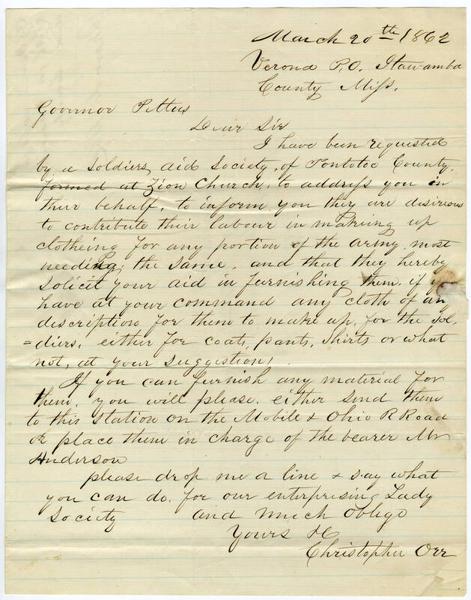 March 20th 1862
Verona P.O. Itawamba
County Miss.
Govornor Pettus
Dear Sir
I have been requested
by a Soldiers aid Society, of Pontotoc County,
formed at Zion Church, to address you in
their behalf, to inform you they are desirious
to contribute their labour in makeing up
clotheing for any portion of the army most
needing the same, and that they hereby
solicit your aid in furnishing them, if
have at your command any cloth of an
description for them to make up, for the Sol
=diers, either for coats, pants, shirts or what
not, at your suggestion!
If you can furnish any material for
them, you will please, either send them
to this Station on the Mobile & Ohio R Road
or place them in charge of the bearer Mr
Anderson
please drop me a line & say what
you can do, for our enterprising Lady
Society and much oblige
Yours &C
Christopher Orr